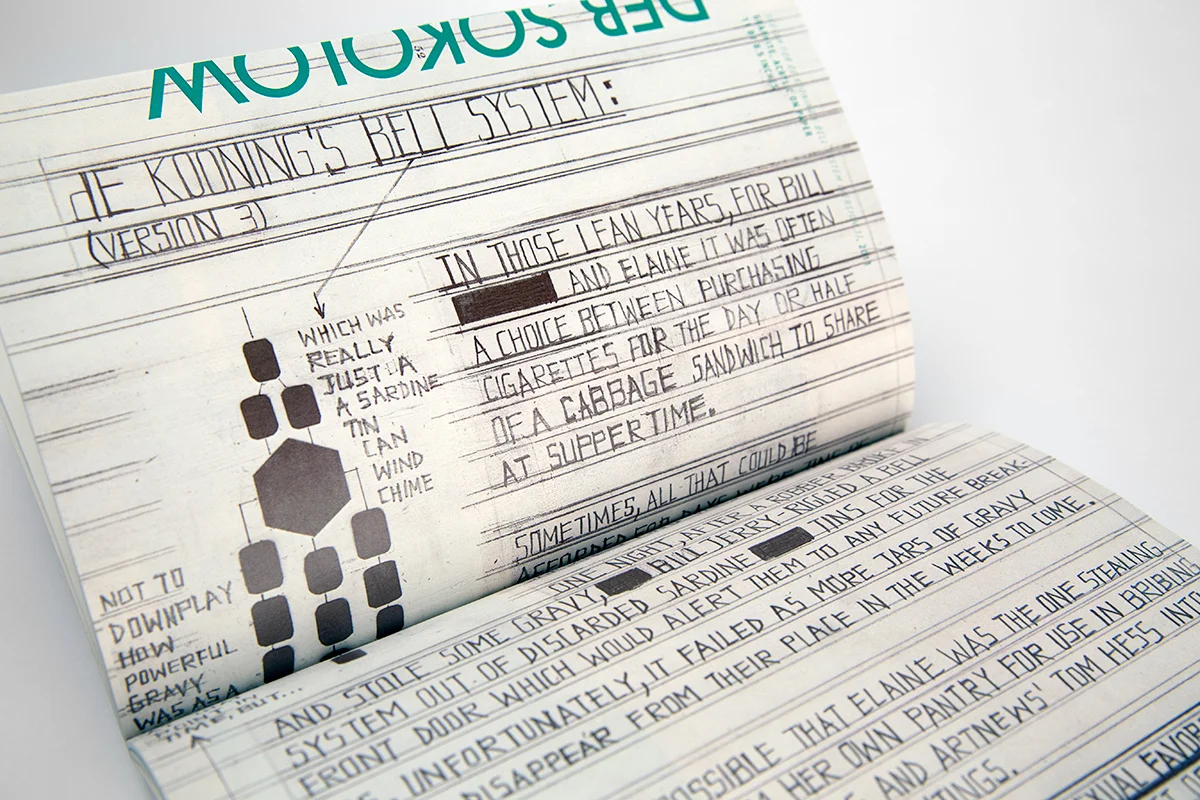 DER SOKOLOW
DE KOONING'S BELL SYSTEM:
(VERSION 3)
WHICH WAS
REALLY
JUST A
A SARDINE
TIN
CAN
WIND
CHIME
IN THOSE LEAN YEARS, FOR BILL
AND ELAINE IT WAS OFTEN
A CHOICE BETWEEN PURCHASING
CIGARETTES FOR THE DAY OR HALF
OF A CABBAGE SANDWICH TO SHARE
AT SUPPERTIME.
SOMETIMES, ALL THAT COULD BE
AFFORDED FOR DAYS WERE
NOT TO
DOWNPLAY
HOW
POWERFUL
GRAVY
WAS AS A
ONE NIGHT, AFTER A ROBBER BROKE IN
AND STOLE SOME GRAVY, BILL JERRY-RIGGED A BELL
SYSTEM OUT OF DISCARDED SARDINE TINS FOR THE
FRONT DOOR WHICH WOULD ALERT THEM TO ANY FUTURE BREAK-
UNFORTUNATELY, IT FAILED AS MORE JARS OF GRAVY
DISAPPEAR FROM THEIR PLACE IN THE WEEKS TO COME.
POSSIBLE THAT ELAINE WAS THE ONE STEALING
HER OWN PANTRY FOR USE IN BRIBING
AND ARTNEWS' TOM HESS INTO
TINGS.